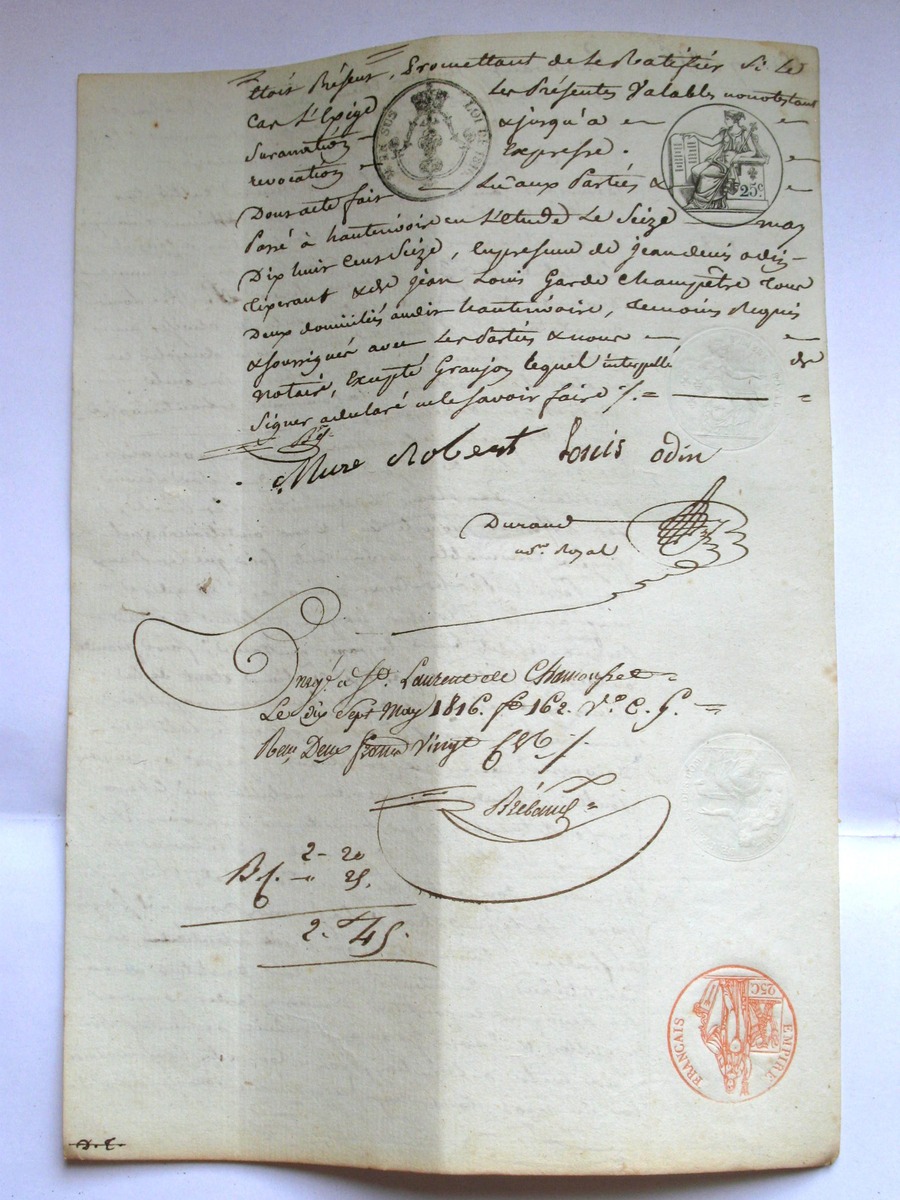 ttoir Présent, Promettant de le Ratiffier Si Le
Cas L'Exige Les Présentes Valables nonobstant
Surannation & jusqu'a
revocation Expresse.
Dont acte fait Lu aux Parties &
Passé à hauterivoire en L'Etude Le Seize may
Dix huit Cent Seize, En presence de jean denis odin
& de jean Louis Garde Champêtre Tous
Deux domiciliés audit hauterivoire, Temoins Requis
& soussignés avec Les Parties & nous
Notaire, Excepté Granjon Lequel interpellé de
Signer a declaré ne le Savoir faire ./. =
Mure Robert Louis odin
Durand
no.re Royal
EN SUS LOI DE 1816
25c
Enregé a St. Laurent de Chamousset
Le dix Sept May 1816. fo 162. Vo C. 5.
Recu Deux francs Vingt
Brébant
2 - 20
25.
2. 45.
EMPIRE FRANÇAIS
25C